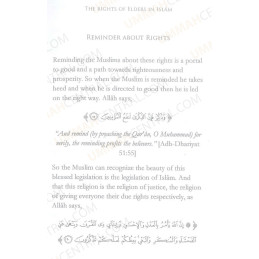 THE RIGHTS OF ELDERS IN ISLAM
REMINDER ABOUT RIGHTS
Reminding the Muslims about these rights is a portal
to good and a path towards righteousness and
prosperity. So when the Muslim is reminded he takes
heed and when he is directed to good then he is led
on the right way. Allāh says,
﴿ وَذَكِّرْ فَإِنَّ الذِّكْرَىٰ تَنفَعُ الْمُؤْمِنِينَ ﴾
"And remind (by preaching the Qur'ân, O Muhammad) for
verily, the reminding profits the believers." [Adh-Dhariyat
51:55]
So the Muslim can recognize the beauty of this
blessed legislation is the legislation of Islām. And
that this religion is the religion of justice, the religion
of giving everyone their due rights respectively, as
Allāh says,
﴿ إِنَّ اللَّهَ يَأْمُرُ بِالْعَدْلِ وَالْإِحْسَانِ وَإِيتَاءِ ذِي الْقُرْبَىٰ وَيَنْهَىٰ عَنِ
الْفَحْشَاءِ وَالْمُنكَرِ وَالْبَغْيِ يَعِظُكُمْ لَعَلَّكُمْ تَذَكَّرُونَ ﴾